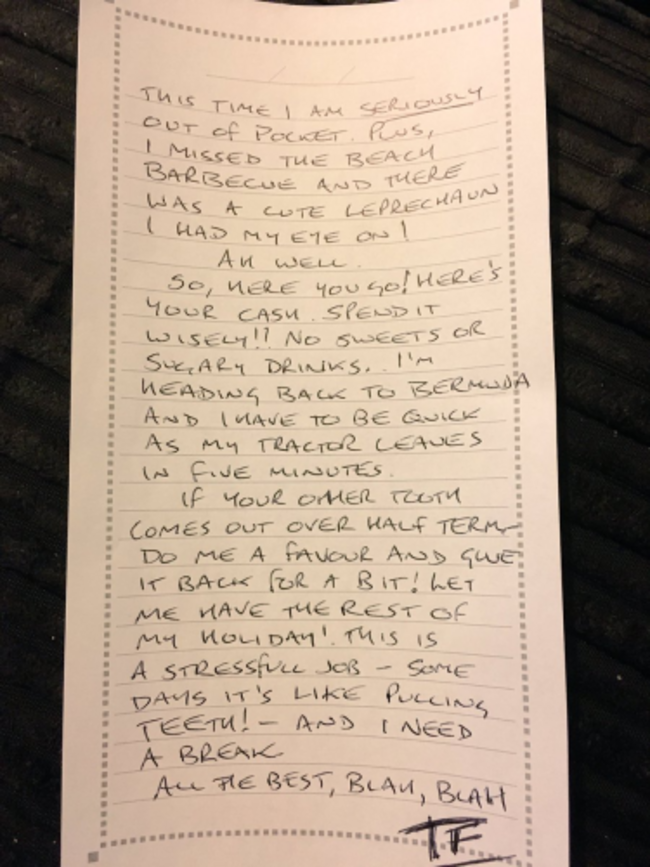 THIS TIME I AM SERIOUSLY
OUT OF POCKET. PLUS,
I MISSED THE BEACH
BARBECUE AND THERE
WAS A CUTE LEPRECHAUN
I HAD MY EYE ON!
AH WELL.
SO, HERE YOU GO! HERE'S
YOUR CASH. SPEND IT
WISELY!! NO SWEETS OR
SUGARY DRINKS. I'M
HEADING BACK TO BERMUDA
AND I HAVE TO BE QUICK
AS MY TRACTOR LEAVES
IN FIVE MINUTES.
IF YOUR OTHER TOOTH
COMES OUT OVER HALF TERM
DO ME A FAVOUR AND GLUE
IT BACK FOR A BIT! LET
ME HAVE THE REST OF
MY HOLIDAY! THIS IS
A STRESSFULL JOB – SOME
DAYS IT'S LIKE PULLING
TEETH! – AND I NEED
A BREAK
ALL THE BEST, BLAH, BLAH
TF